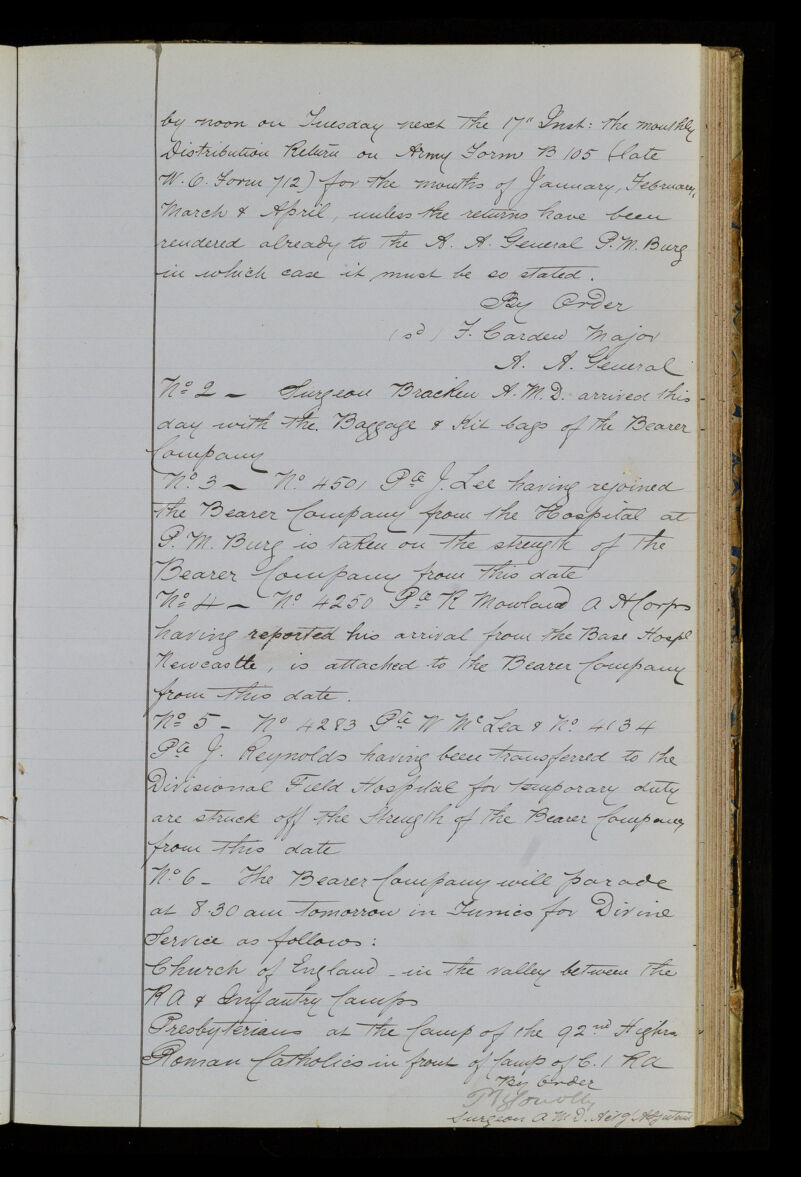 by noon on Tuesday next the 17" Inst: the monthly
Distribution Return on Army Form B 105 (late
W.O. Form 712) for the months of January, February,
March & April, unless the returns have been
rendered already to the A. A. General P.M. Burg
in which case it must be so stated.
By Order
(sd) F. Carden Major
A. A. General
No 2 - Surgeon Bracken A.M.D. arrived this
day with the Baggage & Kit bags of the Bearer
Company
No 3 - No 4501 Pte J. Lee having rejoined
the Bearer Company from the Hospital at
P. M. Burg is taken on the strength of the
Bearer Company from this date
No 4 - No 4250 Pte R Mowland A H Corps
having reported his arrival from the Base Hospl
Newcastle, is attached to the Bearer Company
from this date.
No 5 - No 4283 Pte W McLea & No 4134
Pte J. Reynolds having been transferred to the
Divisional Field Hospital for temporary duty
are struck off the Strength of the Bearer Company
from this date
No 6 - The Bearer Company will parade
at 8.30 am tomorrow in Tunics for Divine
Service as follows:
Church of England - in the valley between the
RA & Infantry Camps
Presbyterians at the Camp of the 92nd Highrs
Roman Catholics in front of Camp of C.1 RA
By Order
Surgeon A M D. Actg Adjutant